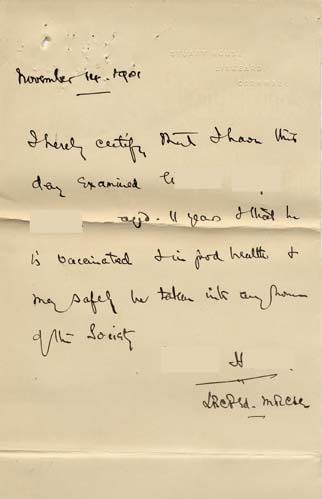 STUART HOUSE,
LISKEARD,
CORNWALL.
November 14. 1901
I hereby certify that I have this
day examined G
aged 11 years & that he
is vaccinated & in good health &
may safely be taken into any home
of the Society
H
LRCPEd. MRCSE